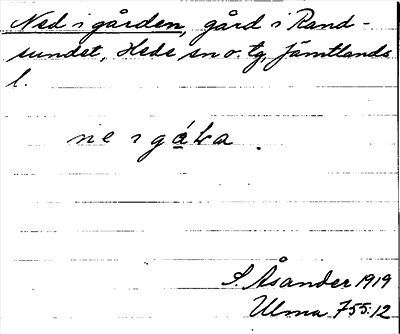 Ned i gården, gård i Rand-
sundet, Hede sn o. tg, Jämtlands
l.
ne i gáLa.
S. Åsander 1919
Ulma 755:12